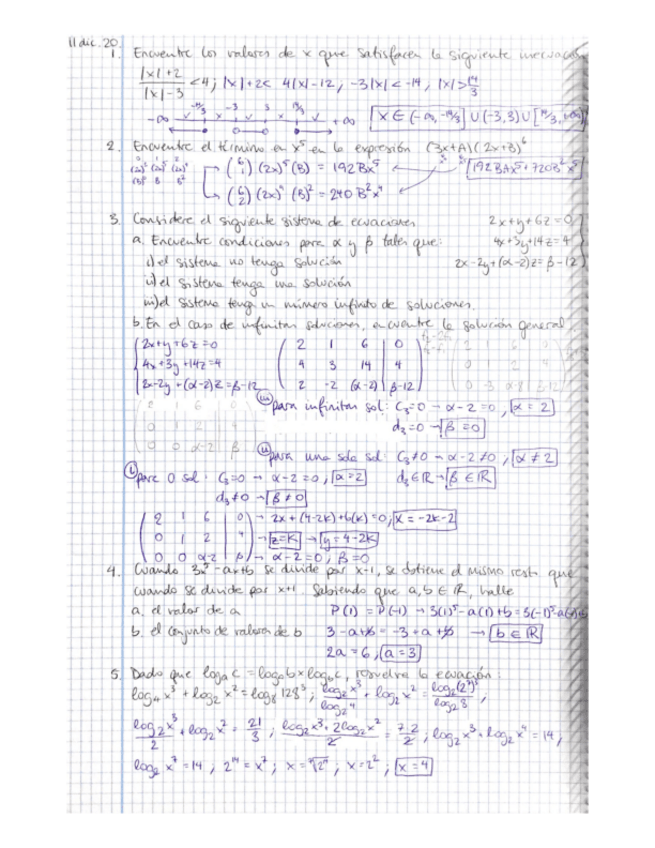 11 dic. 20.
1. Encuentre los valores de x que satisfacen la siguiente inecuación
|x|+2 / |x|-3 < 4 ; |x|+2 < 4|x|-12 ; -3|x| < -14 ; |x| > 14/3
-∞ -14/3 -3 3 14/3 +∞ x ∈ (-∞, -14/3] ∪ (-3,3) ∪ [14/3, +∞)
2. Encuentre el término en x⁵ en la expresión (3x+A)(2x+B)⁶
(6 1) (2x)⁵ (B) = 192Bx⁵ 192BAx⁵ + 720B²x⁵
(6 2) (2x)⁴ (B)² = 240B²x⁴
3. Considere el siguiente sistema de ecuaciones 2x+y+6z=0
a. Encuentre condiciones para α y β tales que: 4x+3y+14z=4
i) el sistema no tenga solución 2x-2y+(α-2)z=β-12
ii) el sistema tenga una solución
iii) el sistema tenga un número infinito de soluciones.
b. En el caso de infinitas soluciones, encuentre la solución general.
2x+y+6z=0 ( 2 1 6 | 0 )
4x+3y+14z=4 ( 4 3 14 | 4 )
2x-2y+(α-2)z=β-12 ( 2 -2 (α-2) | β-12 )
iii) para infinitas sol: C₃=0 → α-2=0, α=2
d₃=0 → β=0
0 0 α-2 β
ii) para una sola sol: C₃≠0 → α-2≠0, α≠2
i) para 0 sol: C₃=0 → α-2=0, α=2 d₃∈ℝ → β∈ℝ
d₃≠0 → β≠0
( 2 1 6 | 0 ) → 2x+(4-2k)+6(k)=0, x=-2k-2
( 0 1 2 | 4 ) → z=k → y=4-2k
( 0 0 α-2 | β ) → α-2=0, β=0
4. Cuando 3x⁵-ax+b se divide por x-1, se obtiene el mismo resto que
cuando se divide por x+1. Sabiendo que a,b ∈ ℝ, halle
a. el valor de a P(1) = P(-1) → 3(1)⁵-a(1)+b=3(-1)⁵-a(-1)+b
b. el conjunto de valores de b 3-a+b = -3+a+b → b∈ℝ
2a=6, a=3
5. Dado que logₐc = logₐb × log_b c, resuelva la ecuación:
log₄ x³ + log₂ x² = log₈ 128³ ; log₂x³/log₂4 + log₂x² = log₂(2⁷)³/log₂8 ;
log₂x³/2 + log₂x² = 21/3 ; log₂x³+2log₂x²/2 = 7·2/2 ; log₂x³+log₂x⁴=14 ;
log₂x⁷=14 ; 2¹⁴=x⁷ ; x=⁷√2¹⁴ ; x=2² ; x=4